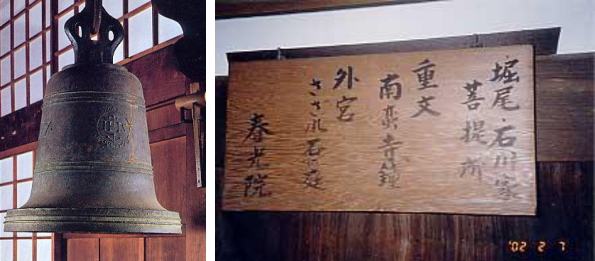 堀尾・石川家
菩提所
重文
南蛮寺鐘
外宮
さざれ石の庭
春光院
'02 2 7